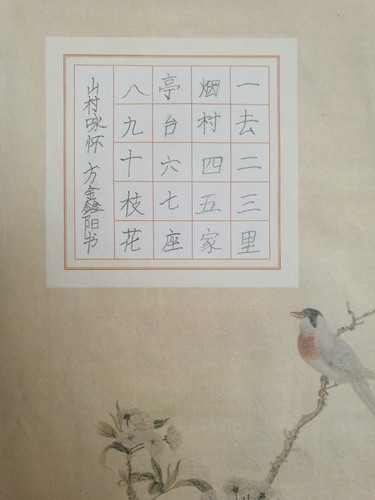 一去二三里
烟村四五家
亭台六七座
八九十枝花
山村咏怀 方鑫阳书